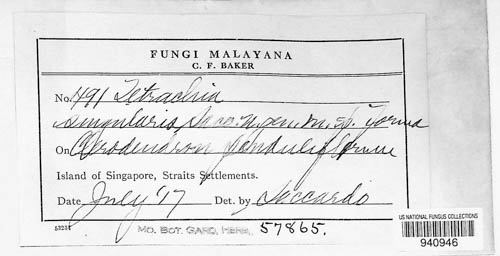 FUNGI MALAYANA
C. F. BAKER
No. 491 Tetrachia
singularis, Sacc. n. gen. n. sp. forma
On Clerodendron
Island of Singapore, Straits Settlements.
Date July '17 Det. by Saccardo
MO. BOT. GARD. HERB. 57865.
US NATIONAL FUNGUS COLLECTIONS
940946